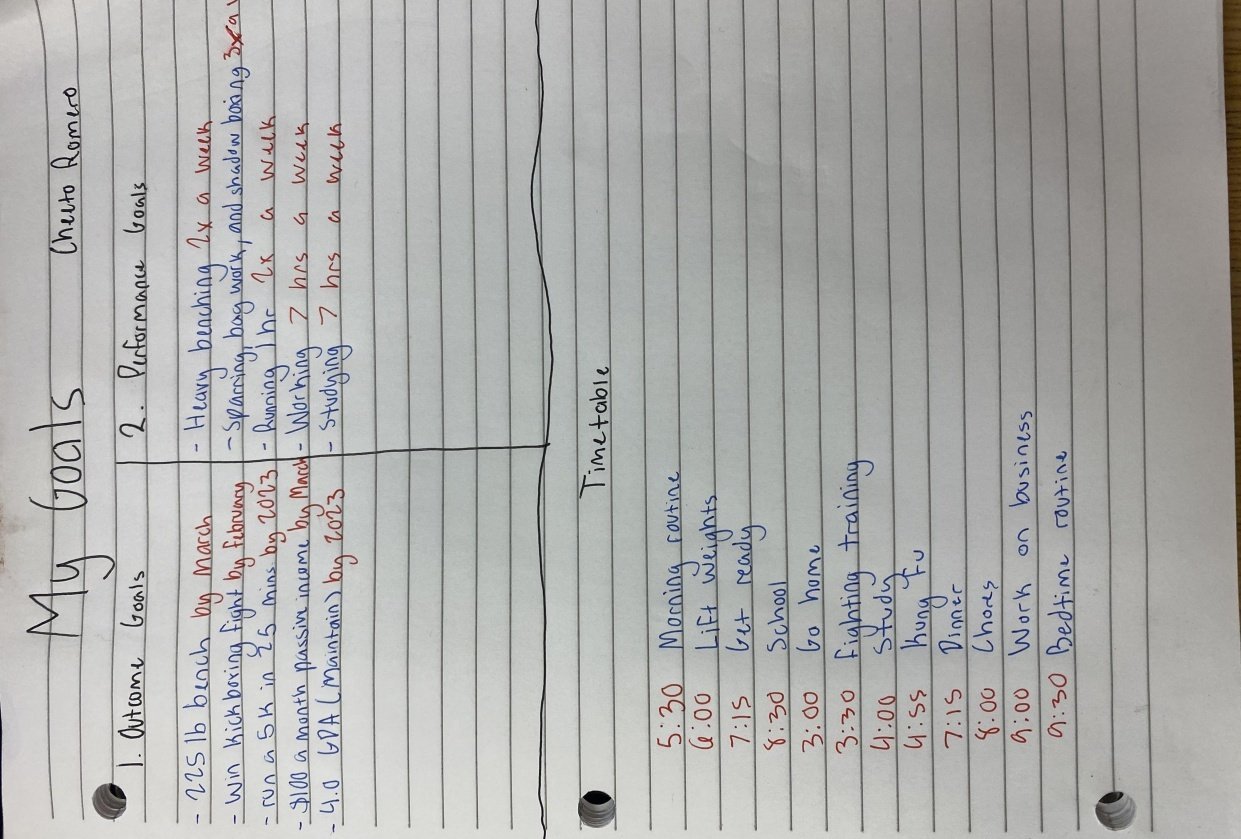 My Goals Cheeto Romero
1. Outcome Goals
- 225 lb bench by March
- Win kickboxing fight by february
- run a 5k in 25 mins by 2023
- $100 a month passive income by March
- 4.0 GPA (Maintain) by 2023
2. Performance Goals
- Heavy benching 2x a week
- Sparring, bag work, and shadow boxing 3x a
- Running 1 hr 2x a week
- Working 7 hrs a week
- Studying 7 hrs a week
Timetable
5:30 Morning routine
6:00 Lift Weights
7:15 Get ready
8:30 School
3:00 Go home
3:30 Fighting training
4:00 Study
4:55 Kung Fu
7:15 Dinner
8:00 Chores
9:00 Work on business
9:30 Bedtime routine